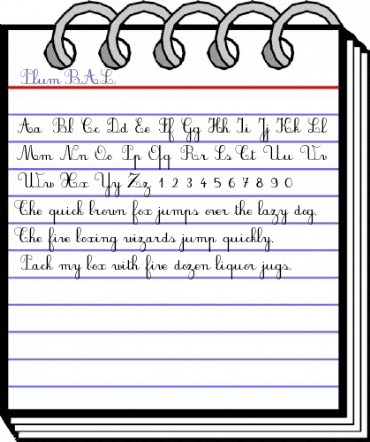 Plum BAL
Aa Bb Cc Dd Ee Ff Gg Hh Ii Jj Kk Ll
Mm Nn Oo Pp Qq Rr Ss Tt Uu Vv
Ww Xx Yy Zz 1 2 3 4 5 6 7 8 9 0
The quick brown fox jumps over the lazy dog.
The five boxing wizards jump quickly.
Pack my box with five dozen liquor jugs.